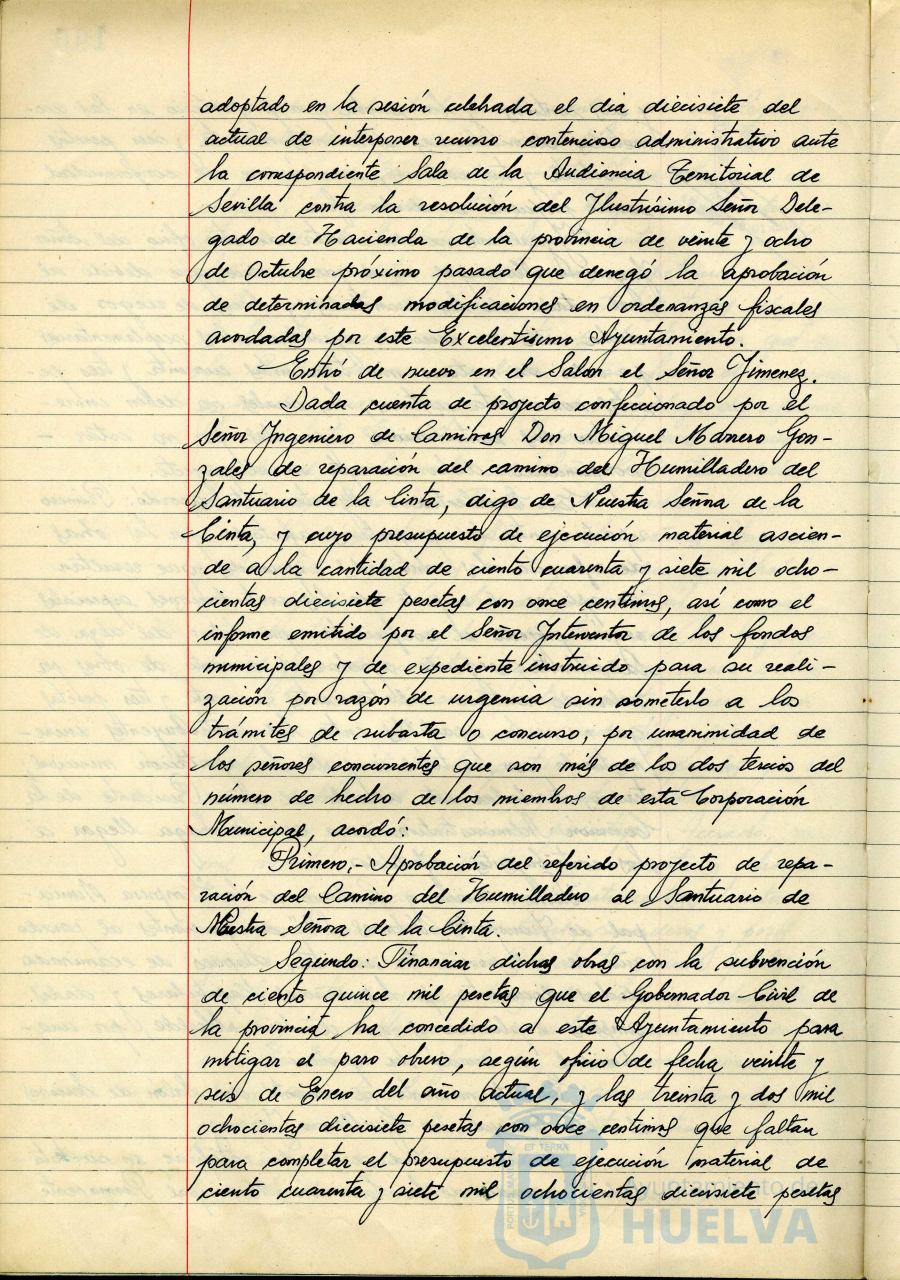 adoptado en la sesión celebrada el dia diecisiete del
actual de interposer recurso contencioso administrativo ante
la correspondiente Sala de la Audiencia Territorial de
Sevilla contra la resolución del Ilustrisimo Señor Dele-
gado de Hacienda de la provincia de veinte y ocho
de Octubre próximo pasado que denegó la aprobación
de determinadas modificaciones en ordenanzas fiscales
acordadas por este Excelentisimo Ayuntamiento.
Entró de nuevo en el Salon el Señor Jimenez.
Dada cuenta de projecto confeccionado por el
Señor Ingeniero de Caminos Don Miguel Manero Gon-
zales de reparación del camino del Humilladero del
Santuario de la Cinta, digo de Nuestra Señora de la
Cinta, y cuyo presupuesto de ejecución material ascien-
de á la cantidad de ciento cuarenta y siete mil ocho-
cientas diecisiete pesetas con once centimos, así como el
informe emitido por el Señor Interventor de los fondos
municipales y de expediente instruido para su reali-
zación por razón de urgencia sin someterlo a los
trámites de subasta o concurso, por unanimidad de
los señores concurrentes que son más de los dos tercios del
número de hecho de los miembros de esta Corporación
Municipal, acordó:
Primero.- Aprobación del referido proyecto de repa-
ración del Camino del Humilladero al Santuario de
Nuestra Señora de la Cinta.
Segundo: Financiar dichas obras con la subvención
de ciento quince mil pesetas que el Gobernador Civil de
la provincia ha concedido a este Ayuntamiento para
mitigar el paro obrero, según oficio de fecha veinte y
seis de Enero del año actual, y las treinta y dos mil
ochocientas diecisiete pesetas con once centimos que faltan
para completar el presupuesto de ejecución material de
ciento cuarenta y siete mil ochocientas diecisiete pesetas
Ayuntamiento de
HUELVA